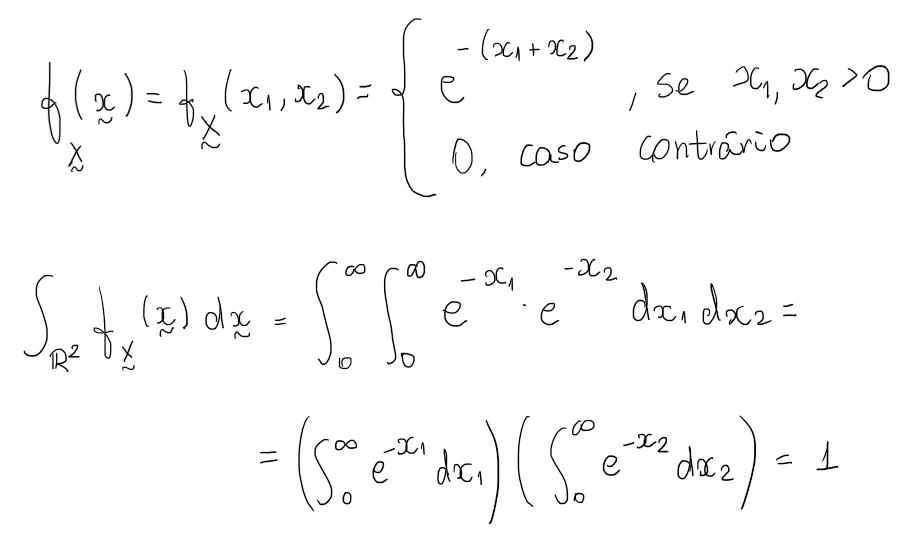 f_X̰(x̰) = f_X̰(x₁, x₂) = { e^{-(x₁+x₂)}, se x₁, x₂ > 0
0, caso contrário
∫_{ℝ²} f_X̰(x̰) dx̰ = ∫₀^∞ ∫₀^∞ e^{-x₁} · e^{-x₂} dx₁ dx₂ =
= (∫₀^∞ e^{-x₁} dx₁) (∫₀^∞ e^{-x₂} dx₂) = 1